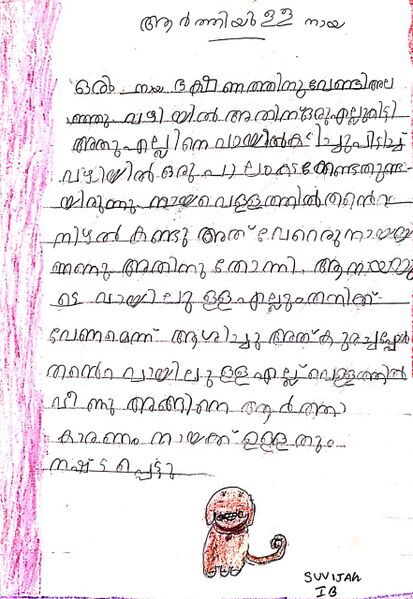 ആർത്തിയുള്ള നായ
ഒരു നായ ഭക്ഷണത്തിനുവേണ്ടി അല
ഞ്ഞു വഴിയിൽ അതിന് ഒരു എല്ലുകിട്ടി
അതു എല്ലിനെ വായിൽ കടിച്ചുപിടിച്ച്
വഴിയിൽ ഒരു പാലം കടക്കേണ്ടതുണ്ടാ
യിരുന്നു നായ വെള്ളത്തിൽ തൻെറ
നിഴൽ കണ്ടു അത് വേറെരു നായയാ
ണന്നു അതിനു തോന്നി. ആ നായയു
ടെ വായിലു ള്ള എല്ലും തനിക്ക്
വേണമെന്ന് ആശിച്ചു അത് കുരച്ചപ്പോൾ
തൻെറ വായിലു ള്ള എല്ല് വെള്ളത്തിൽ
വീ ന്നു അങ്ങിനെ ആർത്തി
കാരണം നായക്ക് ഉള്ളതും
നഷ്ടപ്പെട്ടു
SUVIJAN
IB